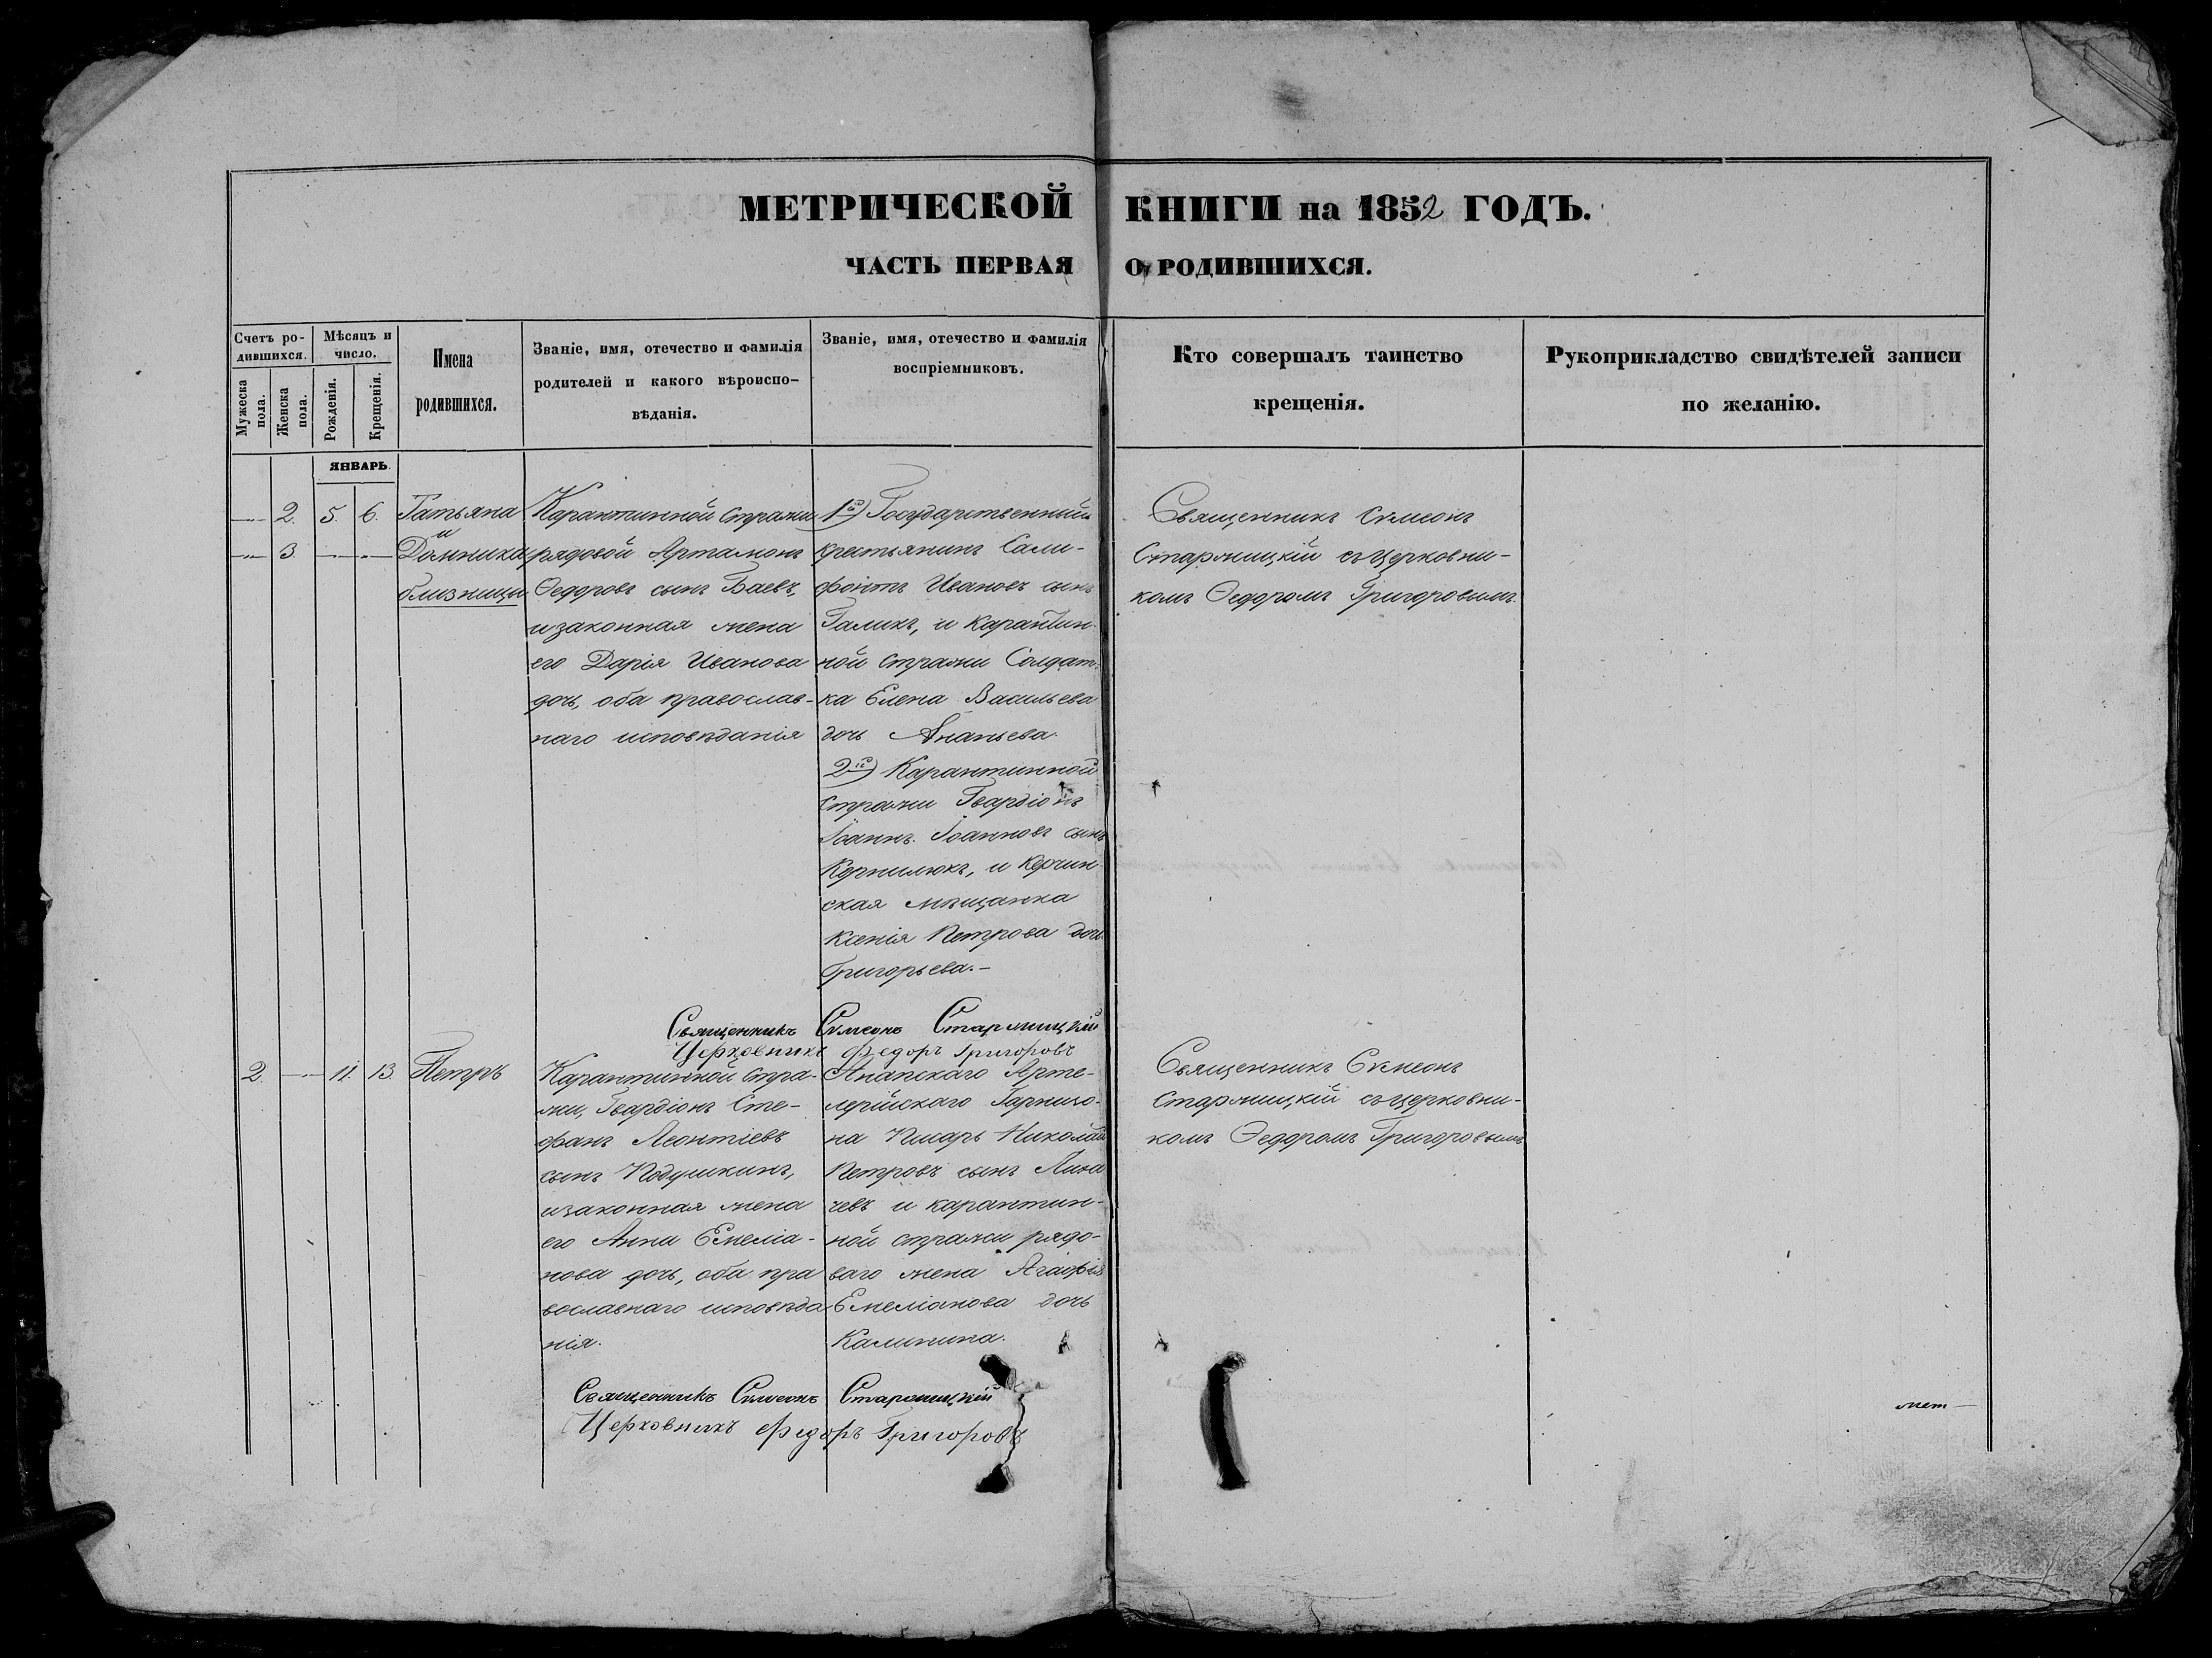 МЕТРИЧЕСКОЙ КНИГИ на 1852 ГОДЪ.
ЧАСТЬ ПЕРВАЯ О РОДИВШИХСЯ.
Счетъ ро-
дившихся.
Мужеска
пола.
Женска
пола.
Мѣсяцъ и
число.
Рожденія.
Крещенія.
Имена
родившихся.
Званіе, имя, отечество и фамилія
родителей и какого вѣроиспо-
вѣданія.
Званіе, имя, отечество и фамилія
воспріемниковъ.
Кто совершалъ таинство
крещенія.
Рукоприкладство свидѣтелей записи
по желанію.
ЯНВАРЬ.
2. 5. 6.
3
Татьяна
и
Домника
близницы
Карантинной стражи
рядовой Артамонъ
Ѳедоровъ сынъ Баевъ,
и законная жена
его Дарія Иванова
дочь, оба православ-
наго исповѣданія
1й) Государственный
крестьянинъ Сали-
фонтъ Ивановъ сынъ
Галикъ, и Карантин-
ной стражи Солдат-
ка Елена Васильева
дочь Ананьева.
2й) Карантинной
стражи Гвардіонъ
Іоаннъ Іоанновъ сынъ
Корнилюкъ, и Керчин
ская мѣщанка
Ксенія Петрова дочь
Григорьева.-
Священникъ Сѵмеонъ
Старжицкій съ церковни-
комъ Ѳедоромъ Григоровымъ.
Священникъ Сѵмеонъ Старжицкій
Церковникъ Федоръ Григоровъ
2. 11. 13. Петръ
Карантинной стра-
жи, Гвардіонъ Сте-
фанъ Леонтіевъ
сынъ Подушкинъ,
и законная жена
его Анна Емеліа-
нова дочь, оба пра
вославнаго исповѣда
нія.
Анапскаго Арти-
лерійскаго Гарнизо-
на Писарь Николай
Петровъ сынъ Лиха
чевъ и карантин-
ной стражи рядо-
ваго жена Агафія
Емеліанова дочь
Калинина.
Священникъ Сѵмеонъ
Старжицкій съ церковни-
комъ Ѳедоромъ Григоровымъ
Священникъ Сѵмеонъ Старжицкій
Церковникъ Федоръ Григоровъ